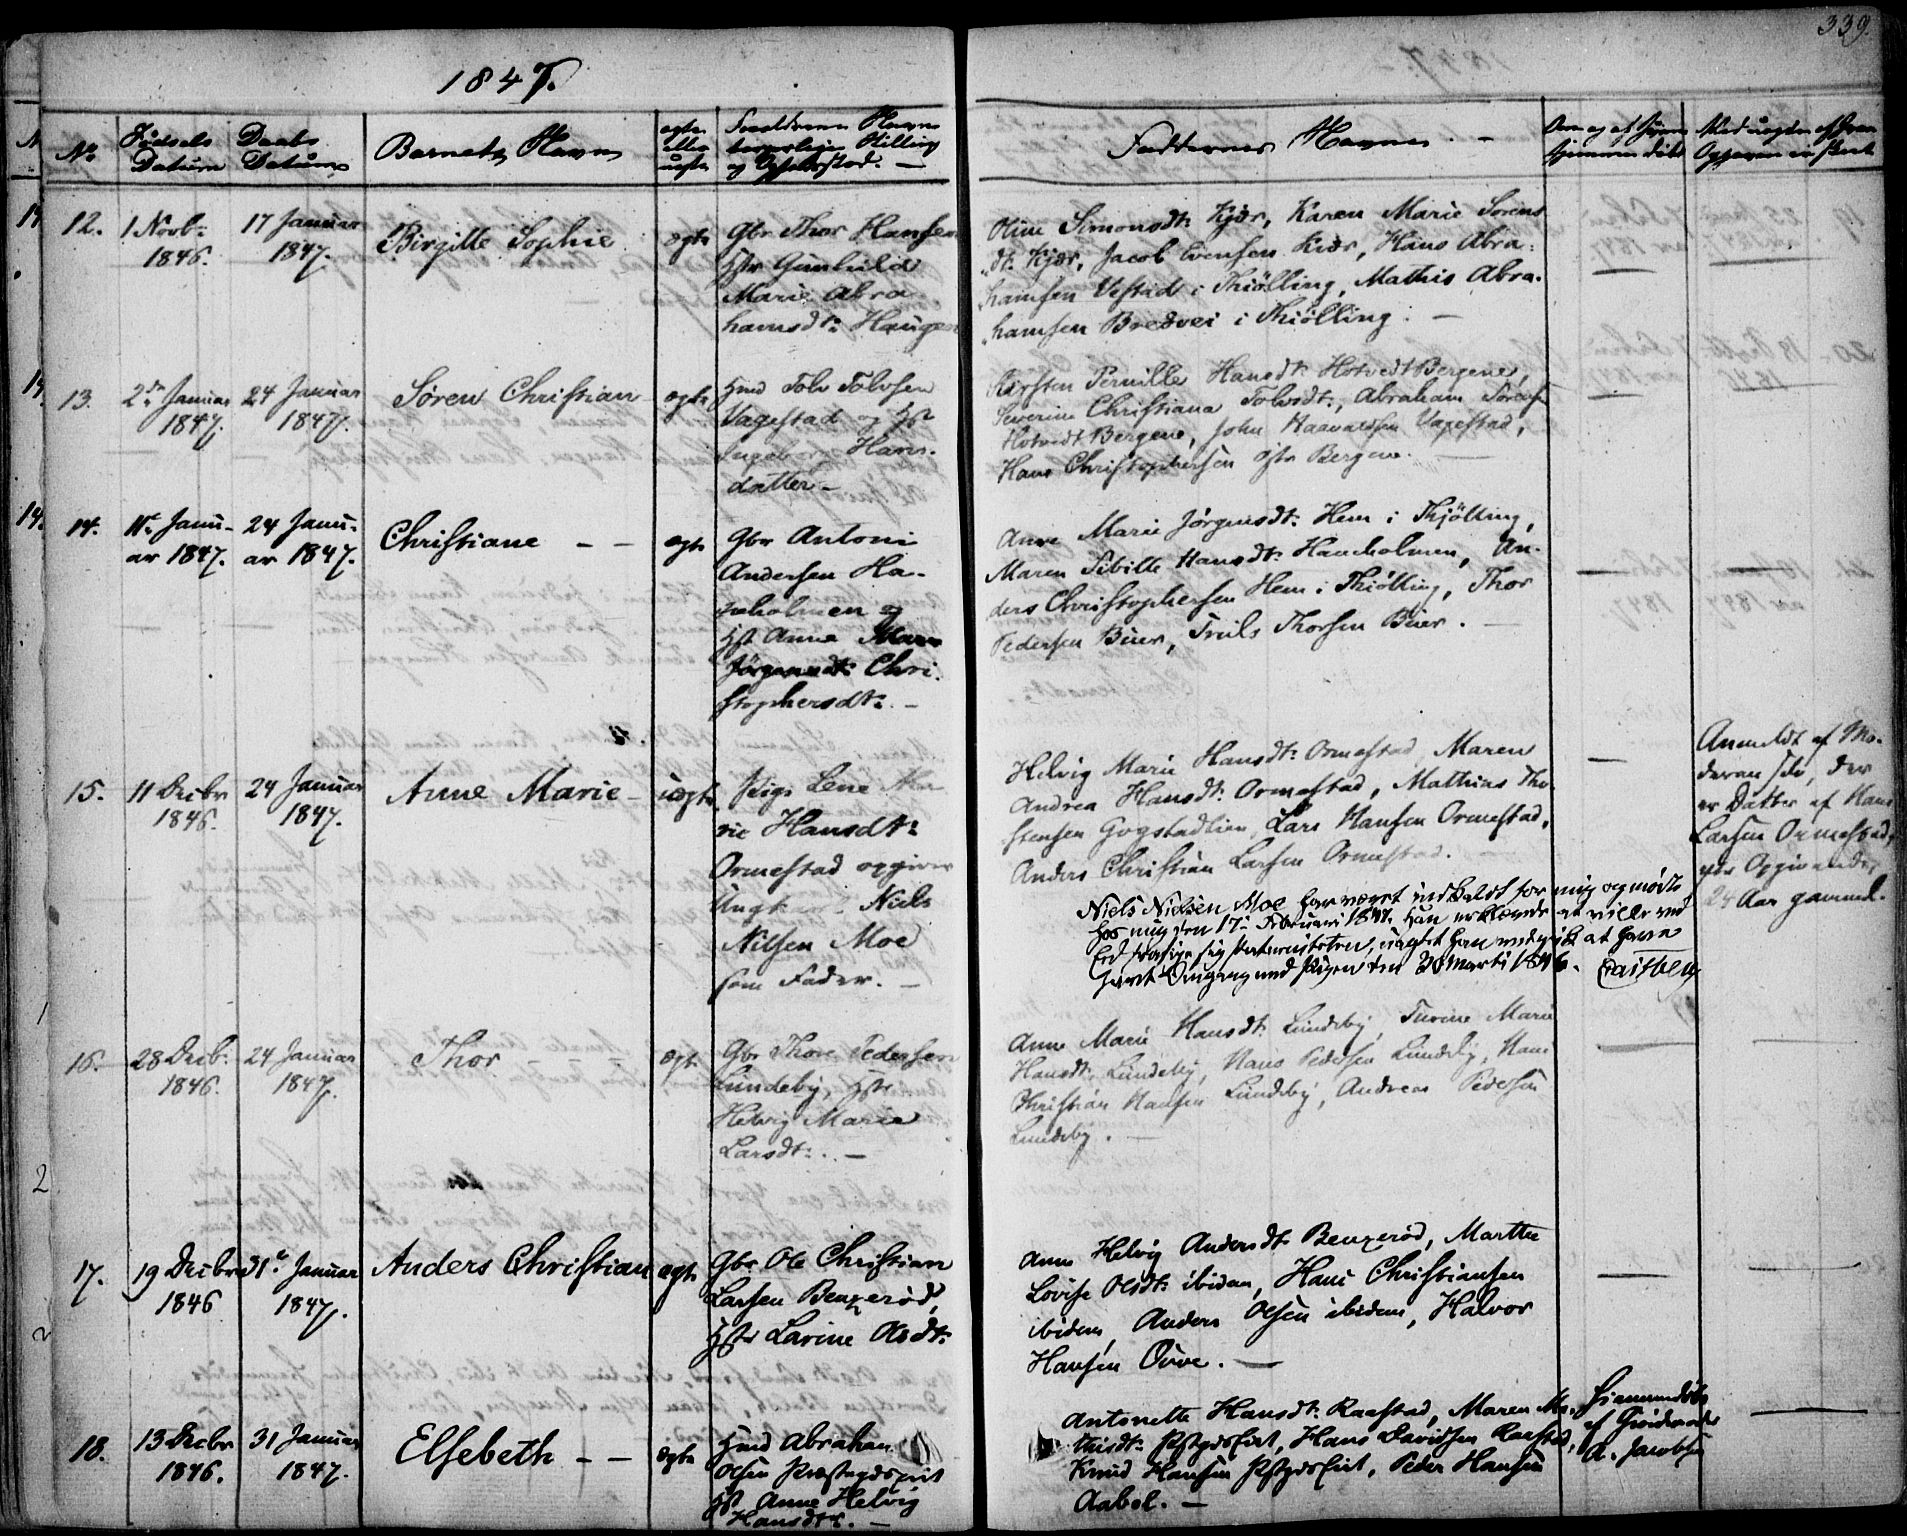 339.
1847.
No
Fødsels Datum
Daabs Datum
Barnets Navn
ægte eller uægte
Forældrenes Navne
og Opholdssted. —
Faddernes Navne. —
12. 1 Novbr 1846. 17 Januar 1847. Birgitte Sophie ægte
Gbr Thor Hansen
Hstr Gunhild
Marie Abra-
hamsdtr Haugen
Simonsdtr Kjær, Karen Marie Sørens
dtr Kjær, Jacob Evensen Kiær, Hans Abra-
hamsen Vestad i Thiølling, Mathis Abra-
hamsen Bredvei i Thiølling. —
13. 2den Januar 1847. 24 Januar 1847. Søren Christian ægte
Hmd Tolv Tolvsen
Vagestad og Hst
Ingeborg Hans-
datter —
Kirsten Pernille Hansdtr Hotvedt Bergene,
Severine Christiana Tolvsdtr, Abraham Sørensen
Hotvedt Bergene, John Haavaldsen Vagestad,
Hans Christophersen Bergene. —
14. 11te Janu-ar 1847. 24 Janu-ar 1847. Christiane — — ægte
Gbr Antoni
Andersen Ha-
neholmen og
Hst Anne Marie
Jørgensdt Chri-
stophersdtr. —
Anne Marie Jørgensdtr Hem i Thjølling,
Maren Sibille Hansdtr Haneholmen, An-
ders Christophersen Hem i Thiølling, Thor
Pedersen Buer, Truls Thorsen Buer. —
15. 11 Decbr 1846. 24 Januar 1847. Anne Marie — uægte
Pige Lene Ma-
rie Hansdtr
Ormestad opgiver
Ungkarl Niels
Nilsen Moe
som Fader. —
Helvig Marie Hansdtr Ormestad, Maren
Andrea Hansdtr Ormestad, Mathias Tho-
stensen Gogstadlien, Lars Hansen Ormestad,
Anders Christian Larsen Ormestad.
Anmeldt af Mo-
deren selv, der
er Datter af Hans
Larsen Ormestad,
24 Aar gammel.
Niels Nielsen Moe har været indkaldt for mig og mødte
hos mig den 17de Februari 1847. Han erklærede at ville ved
Eed fralægge sig Paterniteten, uagtet han vedgik at have
havt Omgang med Pigen den 20 Marti 1846.
16. 28 Decbr 1846. 24 Januar 1847. Thor ægte
Gbr Thore Pedersen
Lundeby, Hstr
Helvig Marie
Larsdtr. —
Anne Marie Hansdtr Lundeby, Turine Marie
Hansdtr Lundeby, Hans Pedersen Lundeby, Hans
Christian Hansen Lundeby, Andreas Pedersen
Lundeby. —
17. 19 Decbr 1846 31te Januar 1847. Anders Christian ægte
Gbr Ole Christian
Larsen Bengerød,
Hstr Larine Olsdtr
Anne Helvig Andersdtr Bengerød, Marthe
Lovise Olsdtr ibidem, Hans Christiansen
ibidem, Anders Olsen ibidem, Halvor
Hansen Ouve. —
18. 13 Decbr 1846. 31 Januar 1847. Elsebeth — — ægte
Hmd Abraham
Olsen Præstegdseiet
Hst Anne Helvig
Hansdtr. —
Antonette Hansdtr Raastad, Maren Ma-
thisdtr Pstgdseiet, Hans Davidsen Raastad,
Knud Hansen Pstgdseiet, Peder Hansen
Aabol. —
Hjemmedøbt
af Gjordemoder
A. Jacobsen